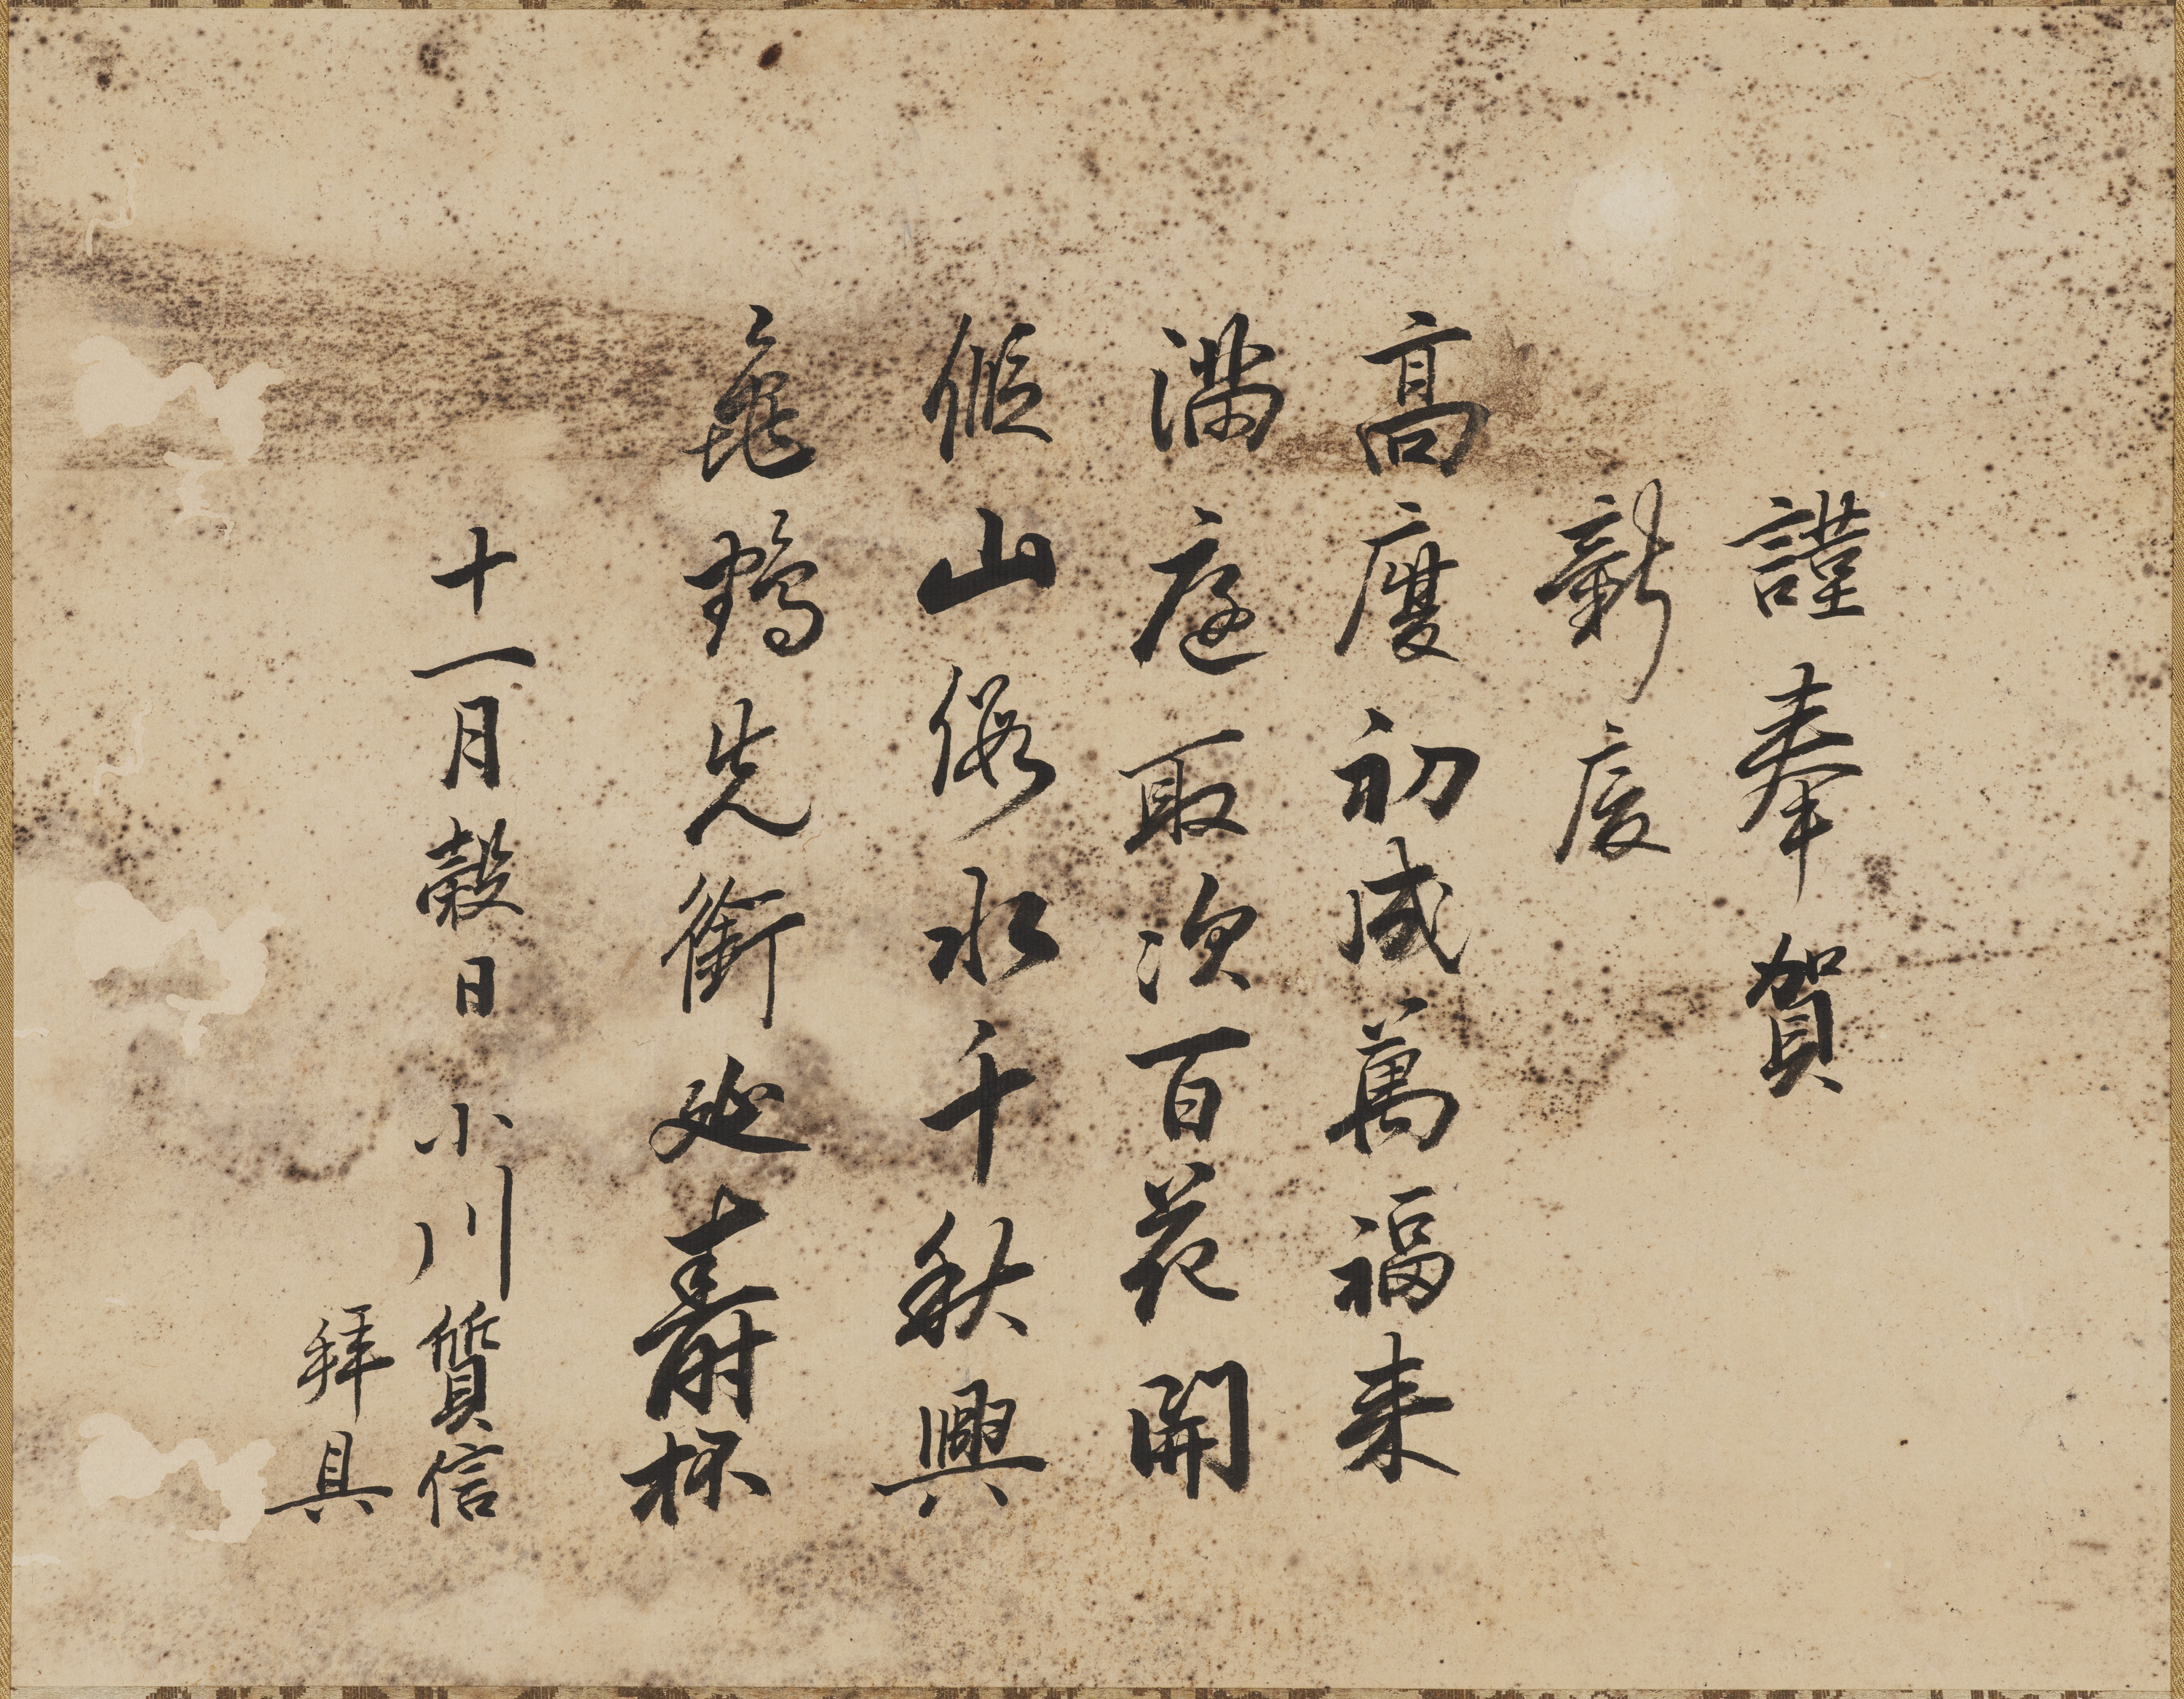 謹奉賀
新廈
高廈初成萬福来
滿庭取次百花開
假山假水千秋興
亀鶴先銜延壽杯
十一月穀日小川質信
拜具